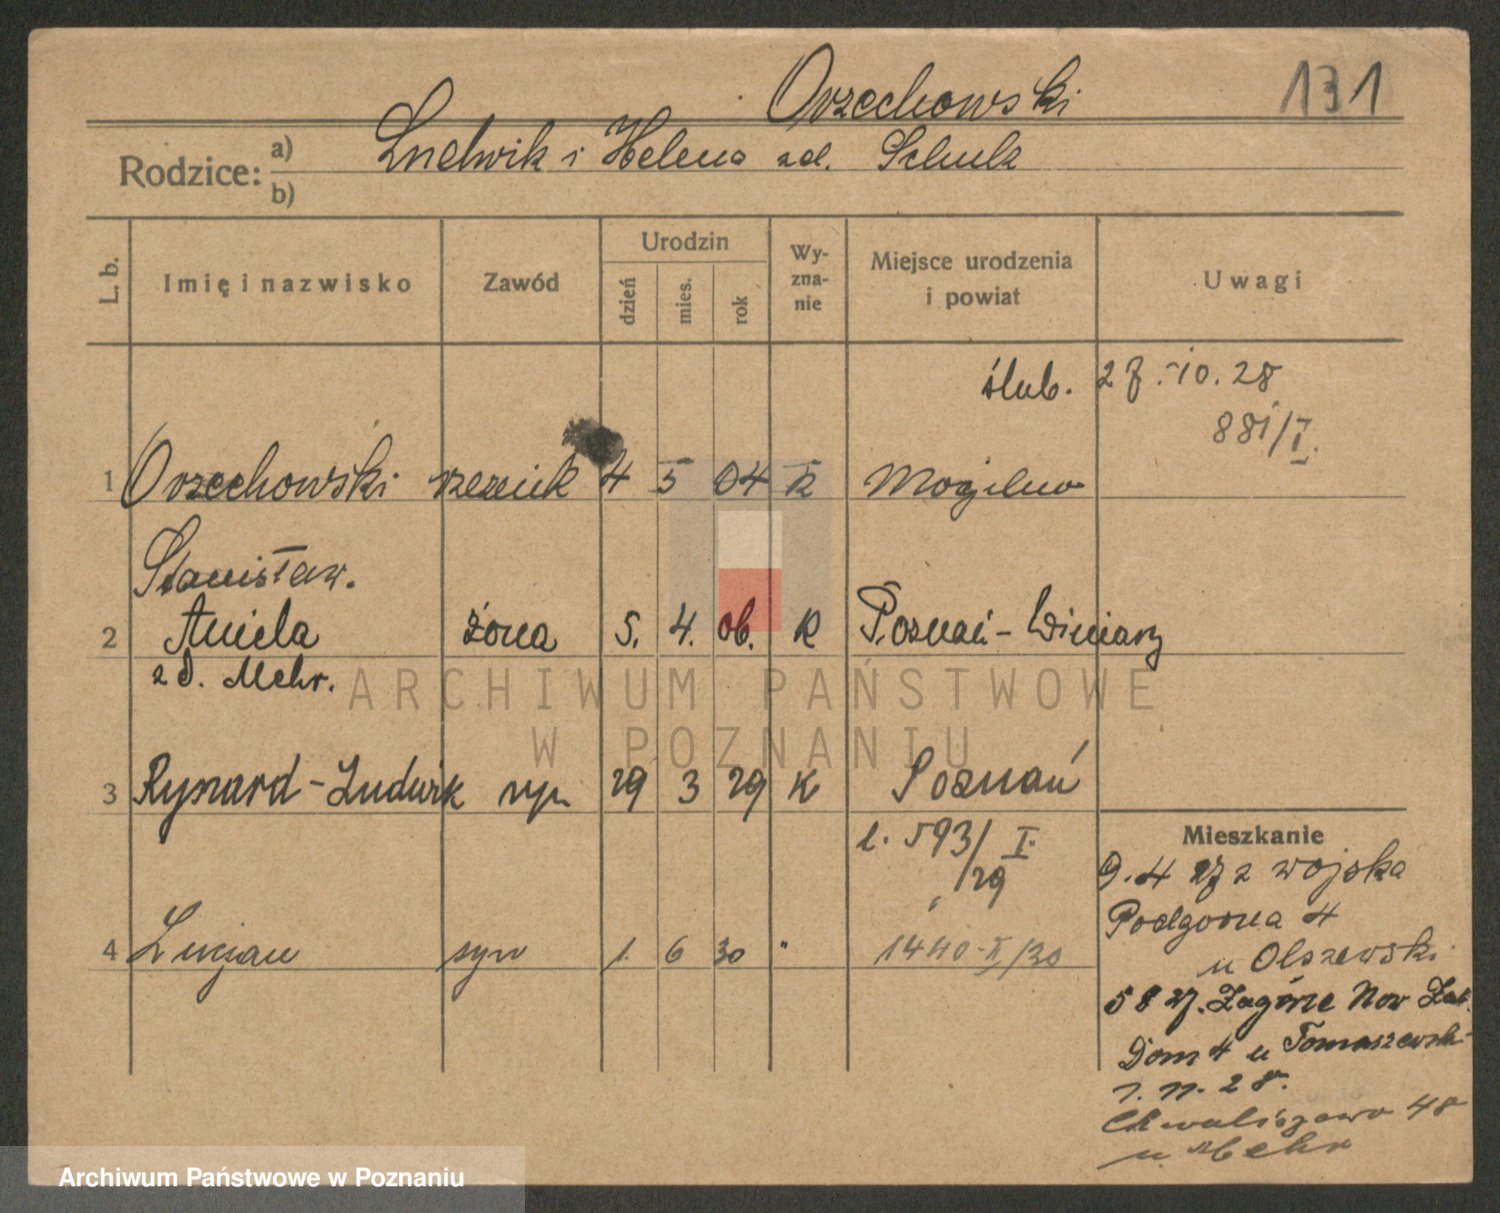 Orzechowski 131
Rodzice: a) Ludwik i Helena zd. Schulz
b)
L. b. Imię i nazwisko Zawód Urodzin dzień mies. rok Wyznanie Miejsce urodzenia i powiat Uwagi
ślub. 27.-10.28
881/I.
1 Orzechowski rzeźnik 4 5 04 K Mogilno
Stanisław.
2 Aniela żona 5. 4. 06. K Poznań - Winiary
zd. Mehr.
3 Ryszard - Ludwik syn 29 3 29 K Poznań
l. 593/I.
/29
4 Lucjan syn 1. 6 30 " 1440-II/30
Mieszkanie
9.4 27 z wojska
Podgorna 4
u Olszewski
5 8 27. Zagórze Now
Dom 4 u Tomaszewski
1. 11. 28.
Chwaliszewo 48
u Mehr
ARCHIWUM PAŃSTWOWE
W POZNANIU
Archiwum Państwowe w Poznaniu